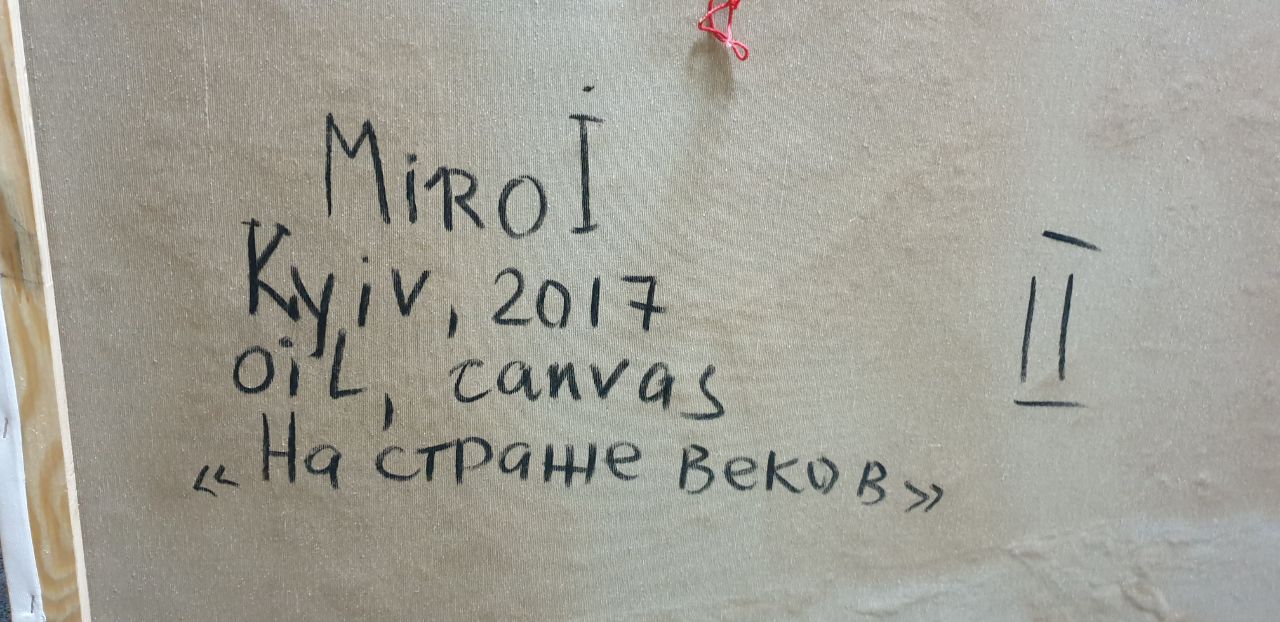 Miro İ
Kyiv, 2017
oil, canvas
«На страже веков»
II